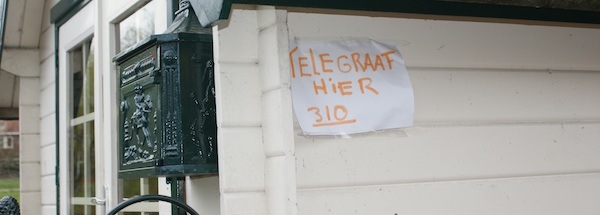 TELEGRAAF
HiER
310